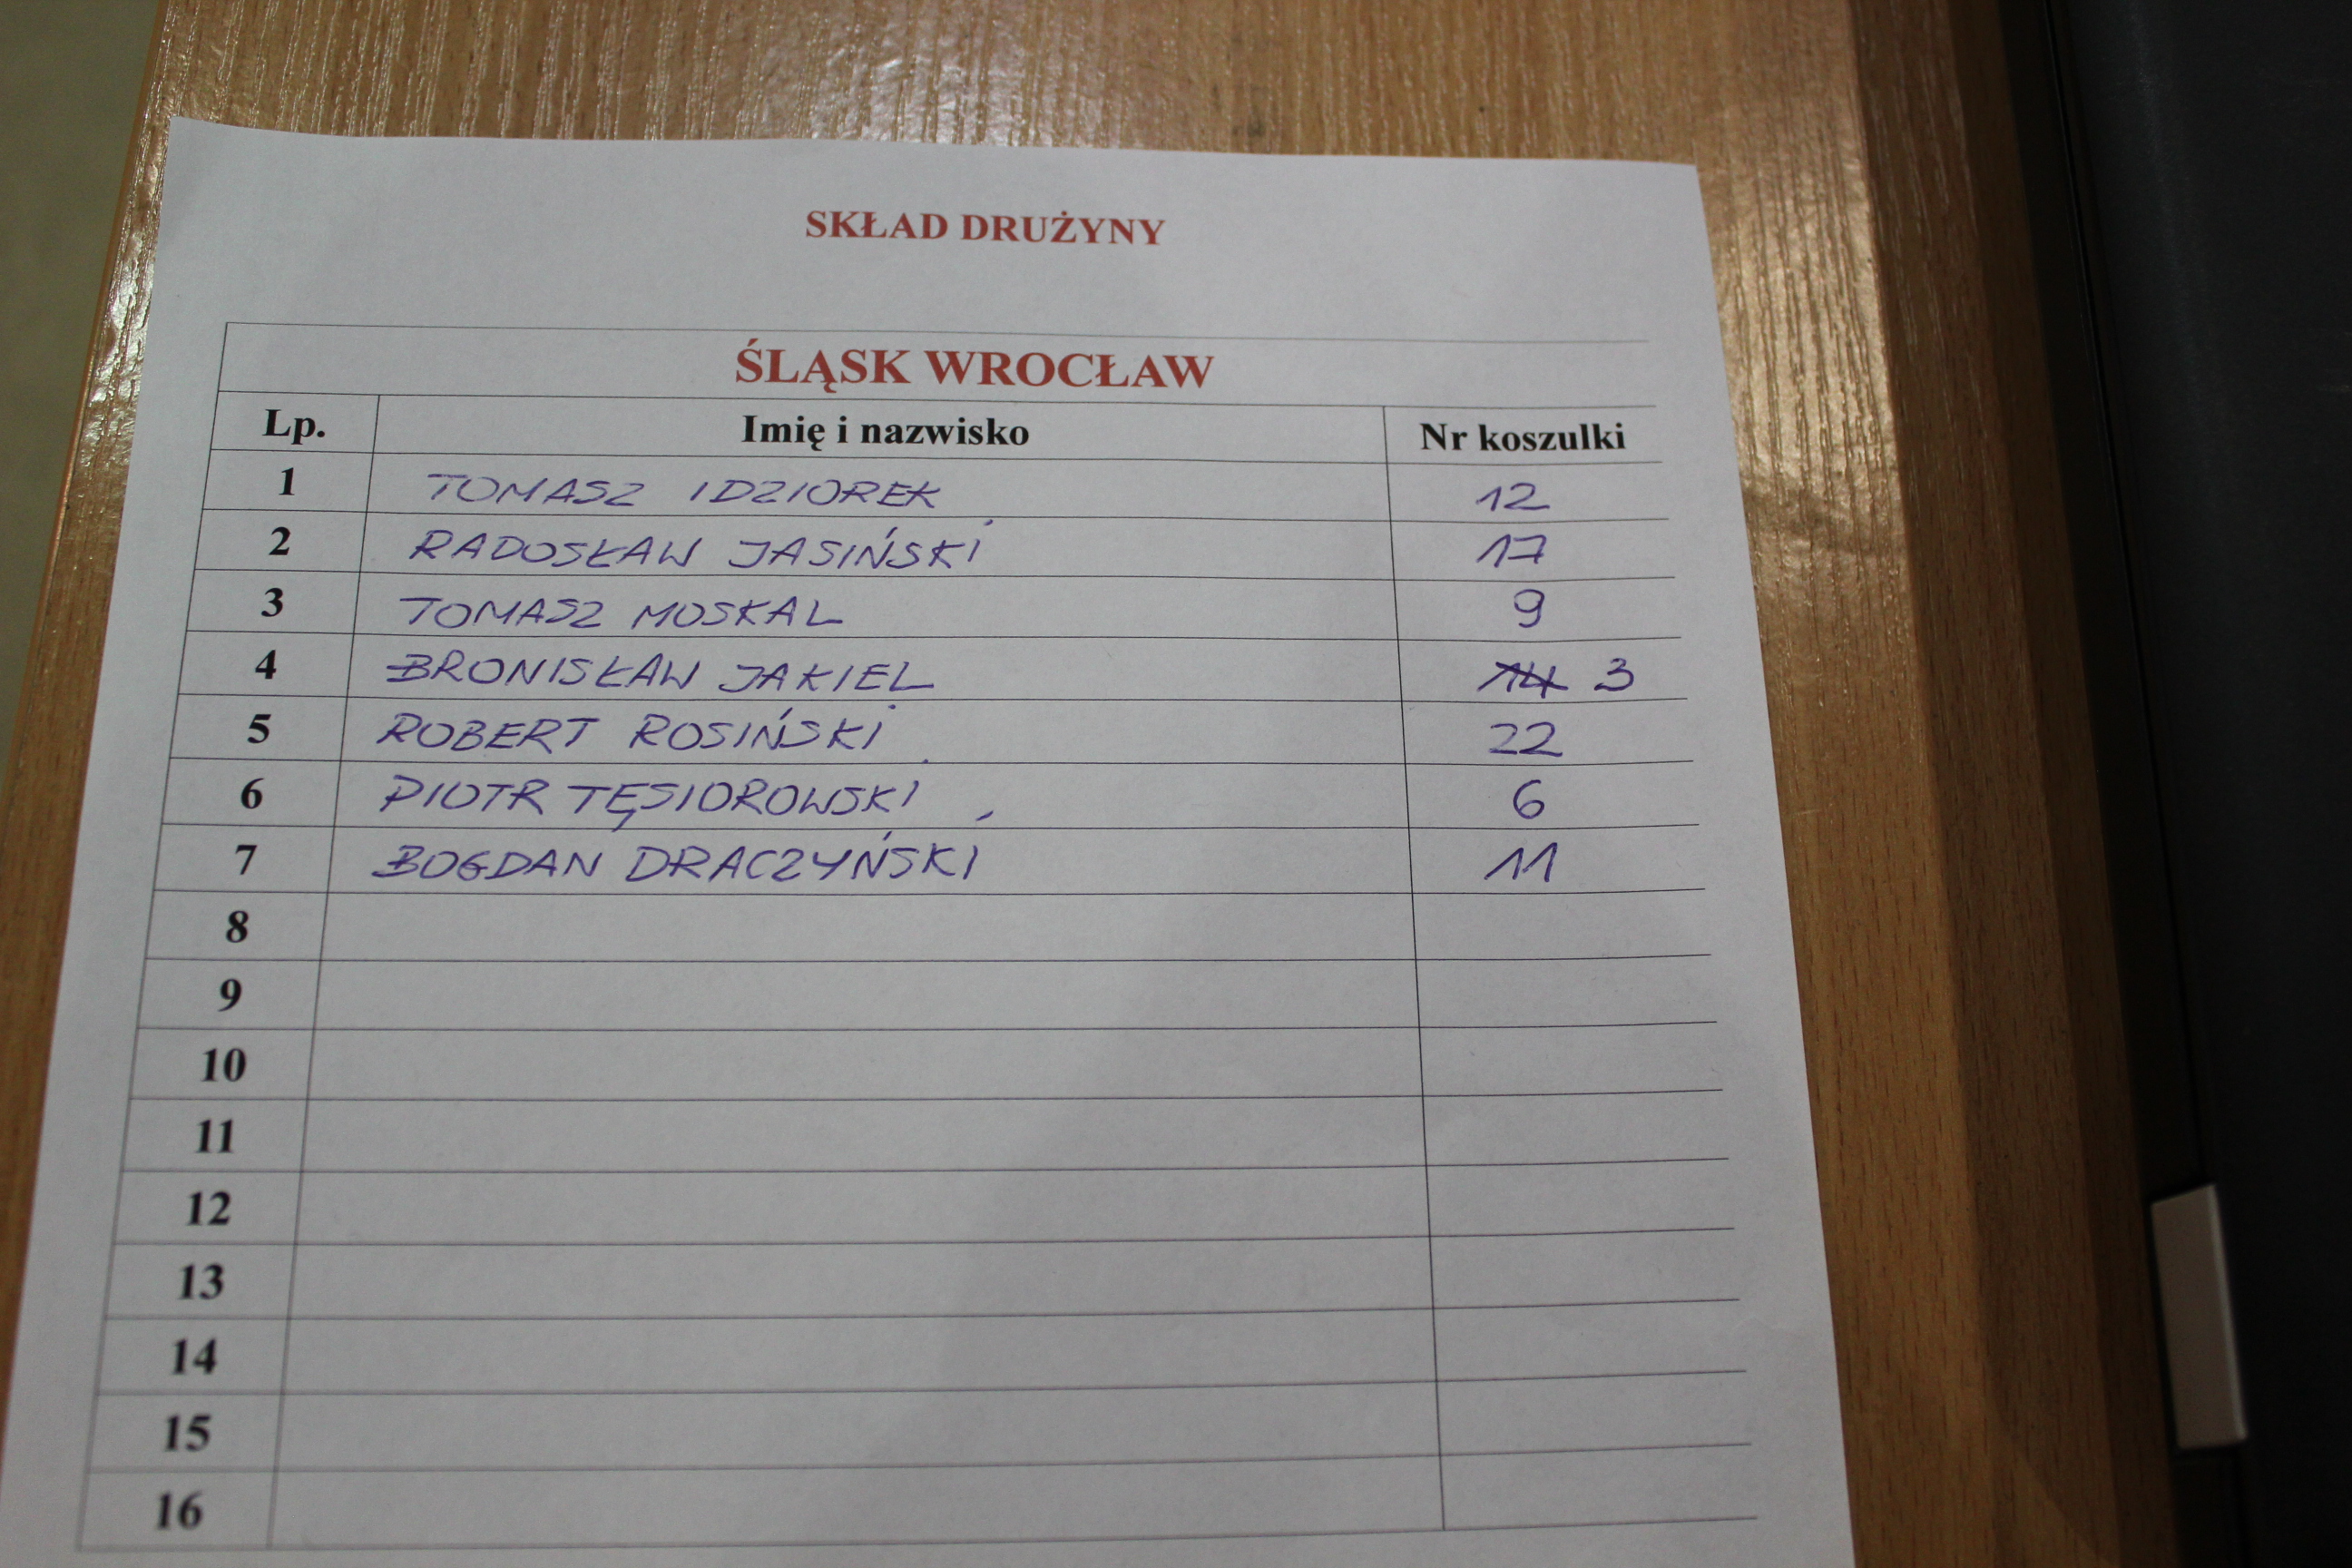 SKŁAD DRUŻYNY
ŚLĄSK WROCŁAW
Lp. Imię i nazwisko Nr koszulki
1 TOMASZ IDZIOREK 12
2 RADOSŁAW JASIŃSKI 17
3 TOMASZ MOSKAL 9
4 BRONISŁAW JAKIEL 14 3
5 ROBERT ROSIŃSKI 22
6 PIOTR TĘSIOROWSKI 6
7 BOGDAN DRACZYŃSKI 11
8
9
10
11
12
13
14
15
16